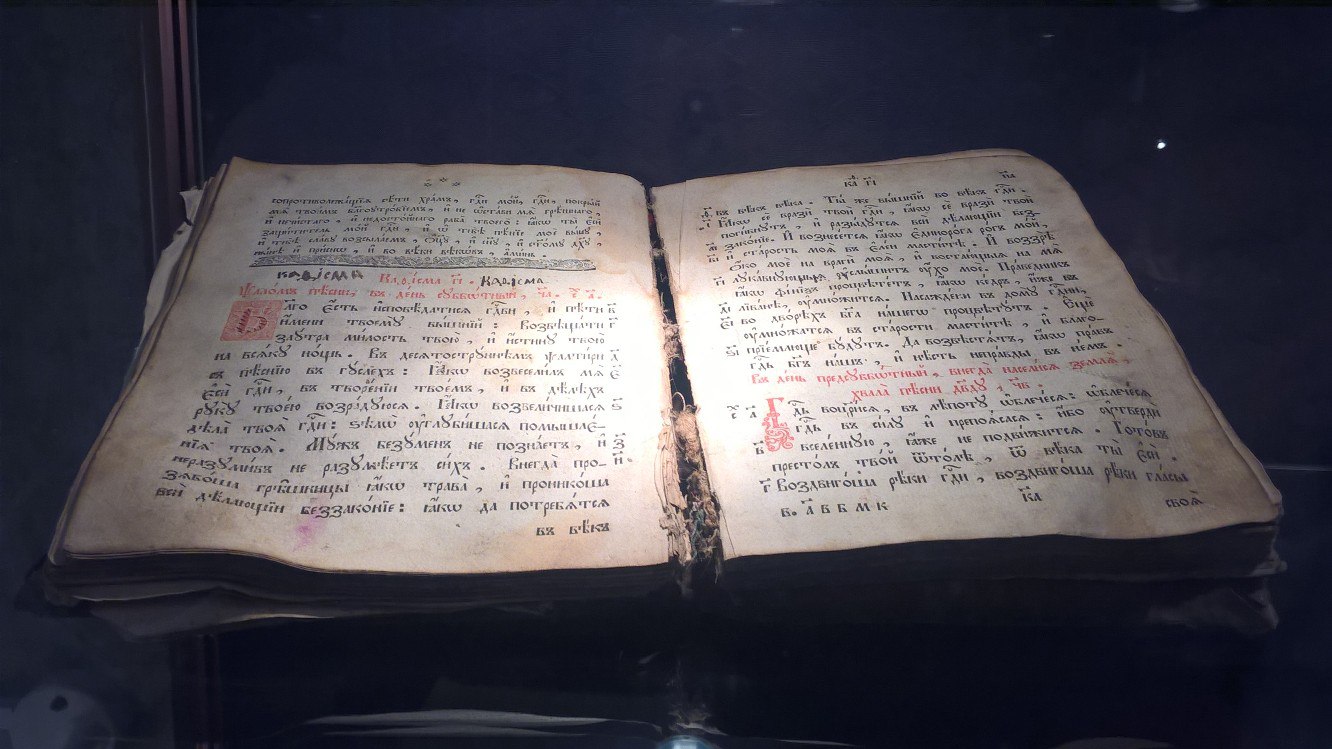 сопротиволежащїѧ сѣти храмъ, гд҃и мой, гд҃и, покрый
мѧ твоимъ благоутробїемъ, и не ѿстави мѧ грѣшнаго,
и нечистаго, и недостойнаго раба твоего: ꙗкѡ ты еси
защититель мой гд҃и, и ѡ тебѣ пѣнїе мое вын҃у,
и тебѣ славу возсылаемъ, оц҃у, и сн҃у, и ст҃ому дх҃у,
нынѣ и присно, и во вѣки вѣкѡвъ, аминь.
каѳісма Каѳісма г҃і. Каѳісма
Ѱаломъ пѣсни, въ день субботный, ч҃а.
Благо есть исповѣдатисѧ гд҃ви, и пѣти в҃
имени твоему вышнїй: Возвѣщати г҃
заутра милость твою, и истину твою
на всѧку нощь. Въ десѧтострꙋннѣмъ ѱалтири д҃
съ пѣснїю въ гуслехъ: Ꙗкѡ возвеселилъ мѧ е҃
еси гд҃и, въ творенїи твоемъ, и въ дѣлехъ
руку твоею возрадуюсѧ. Ꙗкѡ возвеличишасѧ ѕ҃
дѣла твоѧ гд҃и: ѕѣлѡ углубишасѧ помышле-
нїѧ твоѧ. Мужъ безуменъ не познаетъ, и з҃
неразумивъ не разумѣетъ сихъ. Внегда про- и҃
зѧбоша грѣшницы ꙗкѡ трава, и проникоша
вси дѣлающїи беззаконїе: ꙗкѡ да потребѧтсѧ
въ вѣкъ
ка г҃і
въ вѣкъ вѣка. Ты же вышнїй во вѣкъ гд҃и.
Ꙗкѡ се врази твои гд҃и, ꙗкѡ се врази твои
погибнутъ, и разыдутсѧ вси дѣлающїи без-
законїе. И вознесетсѧ ꙗкѡ единорога рогъ мой,
и старость моѧ въ елеи маститѣ. И воззрѣ
око мое на враги моѧ, и востающыѧ на мѧ
лукавнующыѧ услышитъ ухо мое. Праведникъ
ꙗкѡ финиѯъ процвѣтетъ, ꙗкѡ кедръ, иже въ
ливанѣ, умножитсѧ. Насаждени въ дому гд҃ни,
во дворѣхъ бг҃а нашегѡ процвѣтутъ. Еще
умножатсѧ въ старости маститѣ, и благо-
прїемлюще будутъ. Да возвѣстѧтъ, ꙗкѡ правъ
гд҃ь бг҃ъ нашъ, и нѣсть неправды въ немъ.
Въ день предсубботный, внегда населисѧ землѧ,
хвала пѣсни дв҃ду, ч҃в.
Гд҃ь воцрисѧ, въ лѣпоту ѡблечесѧ: ѡблечесѧ
гд҃ь въ силу и препоѧсасѧ: ибо утверди
в҃ вселенную, ꙗже не подвижитсѧ. Готовъ
престолъ твой ѿтолѣ, ѿ вѣка ты еси.
г҃ Воздвигоша рѣки гд҃и, воздвигоша рѣки гласы
ка своѧ